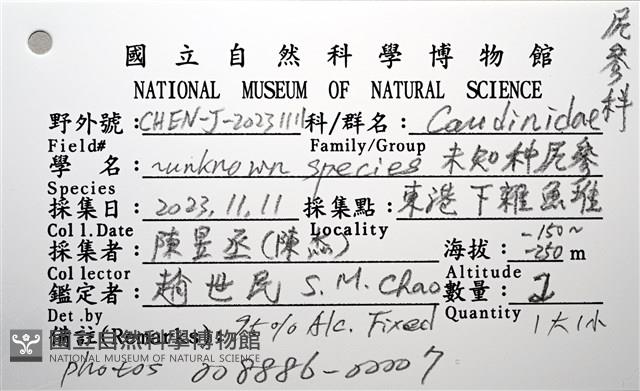 尻參科
國立自然科學博物館
NATIONAL MUSEUM OF NATURAL SCIENCE
野外號：CHEN-J-20231111 科/群名：Caudinidae
Field# Family/Group
學名：unknown species 未知种尻參
Species
採集日：2023,11,11 採集點：東港下雜魚堆
Coll.Date Locality
採集者：陳昱丞(陳杰) 海拔：-150~-250 m
Collector Altitude
鑑定者：趙世民 S. M. Chao 數量：2
Det.by Quantity
備註(Remarks)：95% Alc. Fixed 1大1小
國立自然科學博物館
NATIONAL MUSEUM OF NATURAL SCIENCE
photos 208886-00007